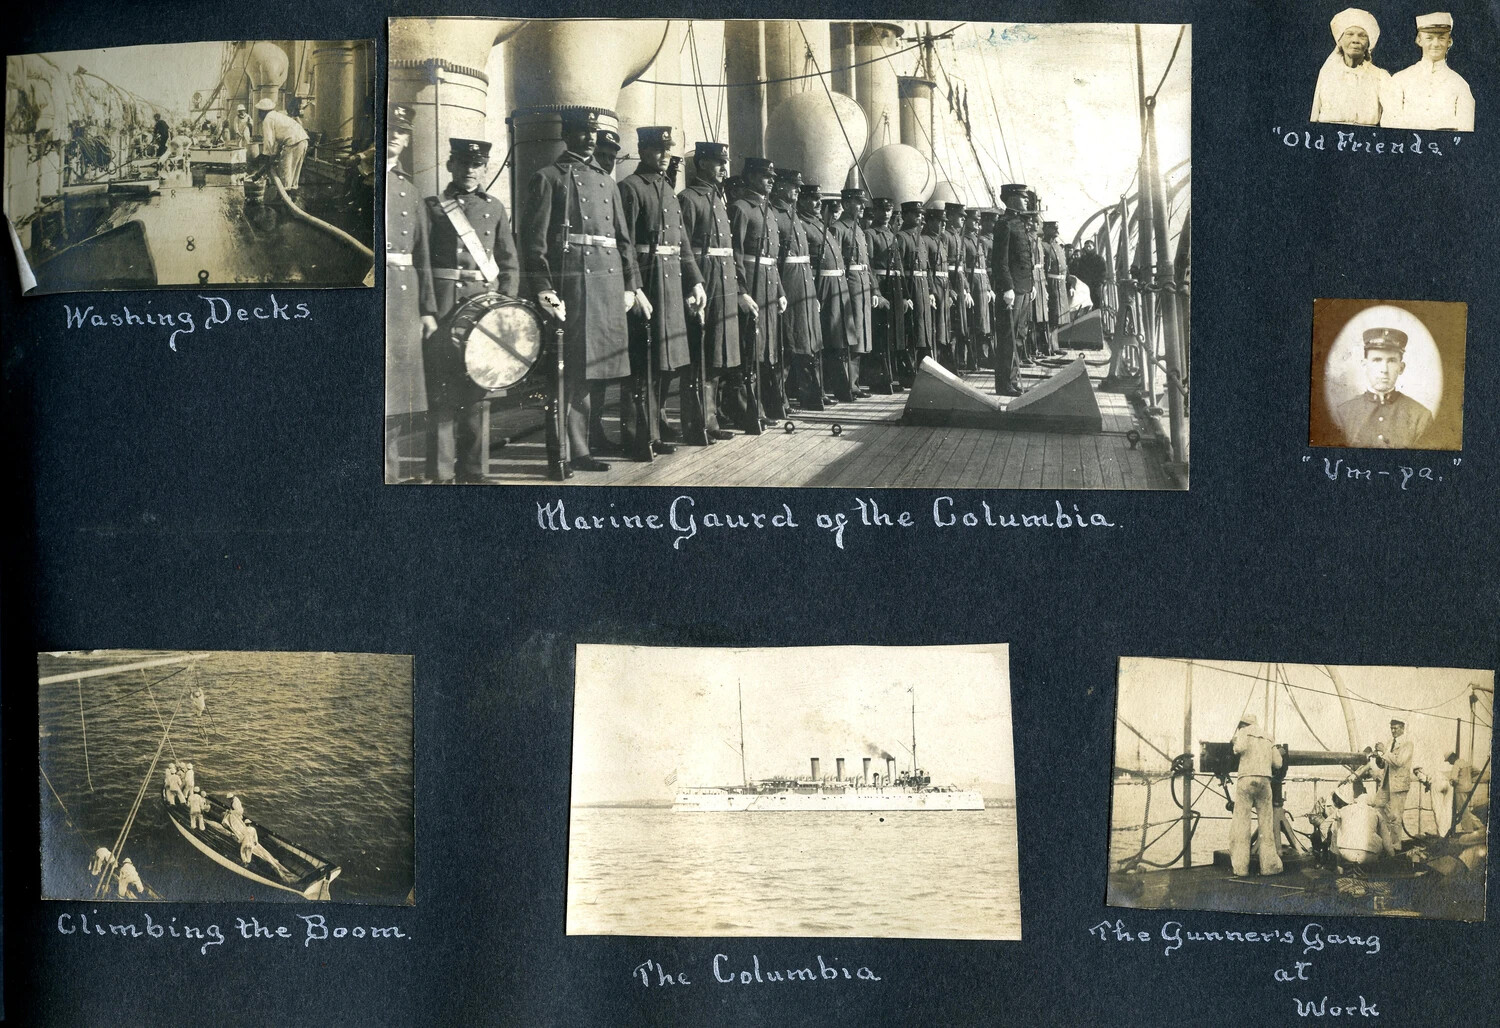 "Old Friends."
Washing Decks.
8
8
"Um-pa."
Marine Gaurd of the Columbia.
Climbing the Boom.
The Columbia
The Gunner's Gang
at
Work